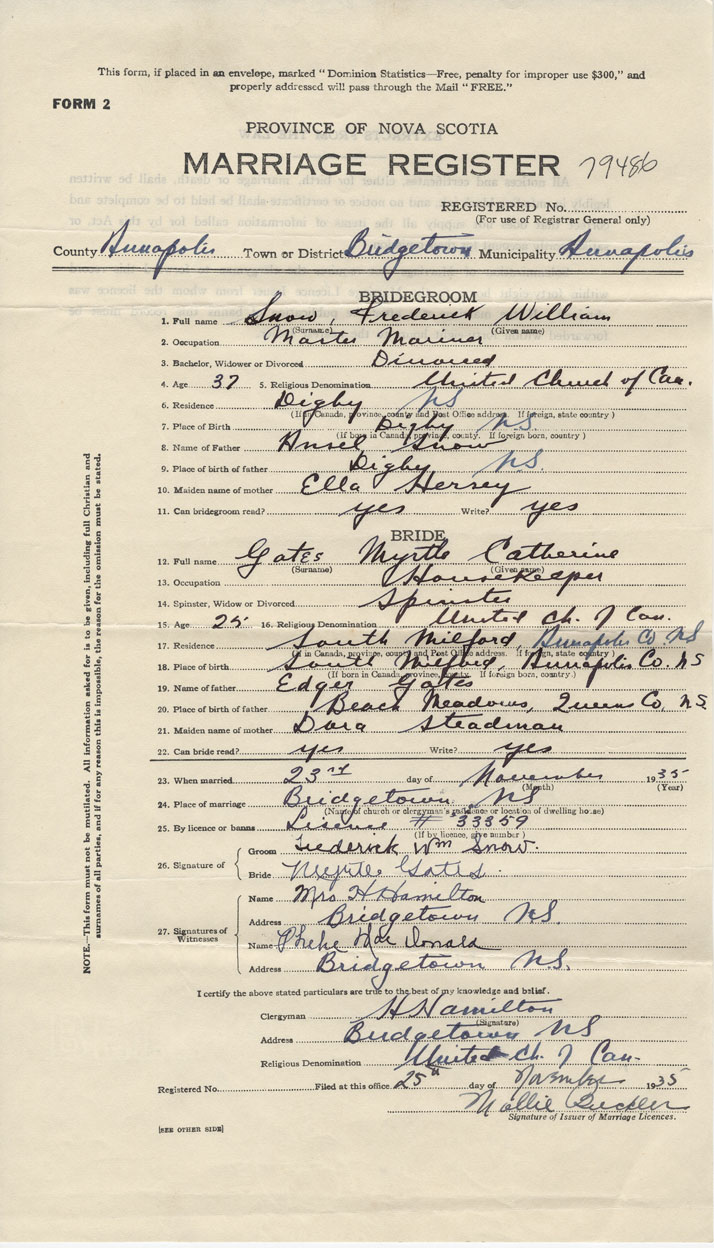 This form, if placed in an envelope, marked "Dominion Statistics—Free, penalty for improper use $300," and
properly addressed will pass through the Mail "FREE."
FORM 2
PROVINCE OF NOVA SCOTIA
MARRIAGE REGISTER 79486
REGISTERED No.
(For use of Registrar General only)
County Annapolis Town or District Bridgetown Municipality Annapolis
BRIDEGROOM
1. Full name Snow, Frederick William
(Surname) (Given name)
2. Occupation Master Mariner
3. Bachelor, Widower or Divorced Divorced
4. Age 37 5. Religious Denomination United Church of Can.
6. Residence Digby NS
(If in Canada, province, county and Post Office address. If foreign, state country)
7. Place of Birth Digby NS.
(If born in Canada, province, county. If foreign born, country)
8. Name of Father Ansel Snow
9. Place of birth of father Digby NS
10. Maiden name of mother Ella Hersey
11. Can bridegroom read? yes Write? yes
BRIDE
12. Full name Gates Myrtle Catherine
(Surname) (Given name)
13. Occupation Housekeeper
14. Spinster, Widow or Divorced Spinster
15. Age 25 16. Religious Denomination United Ch. of Can.
17. Residence South Milford, Annapolis Co. NS
(If in Canada, province, county and Post Office address. If foreign, state country)
18. Place of birth South Milford, Annapolis Co. NS
(If born in Canada, province, county. If foreign born, country.)
19. Name of father Edger Gates
20. Place of birth of father Beach Meadows, Queens Co, NS.
21. Maiden name of mother Dora Steadman
22. Can bride read? yes Write? yes
23. When married 23rd day of November 1935
(Month) (Year)
24. Place of marriage Bridgetown NS
(Name of church or clergyman's residence or location of dwelling house)
25. By licence or banns Lisense # 33359
(If by licence, give number)
26. Signature of
Groom Frederick Wm Snow.
Bride Myrtle Gates.
27. Signatures of Witnesses
Name Mrs H Hamilton
Address Bridgetown NS.
Name Phebe MacDonald
Address Bridgetown N.S.
I certify the above stated particulars are true to the best of my knowledge and belief.
Clergyman H Hamilton
(Signature)
Address Bridgetown NS
Religious Denomination United Ch. of Can.
Registered No. Filed at this office 25th day of November 1935
Mollie
Signature of Issuer of Marriage Licences.
[SEE OTHER SIDE]
NOTE.—This form must not be mutilated. All information asked for is to be given, including full Christian and
surnames of all parties, and if for any reason this is impossible, the reason for the omission must be stated.